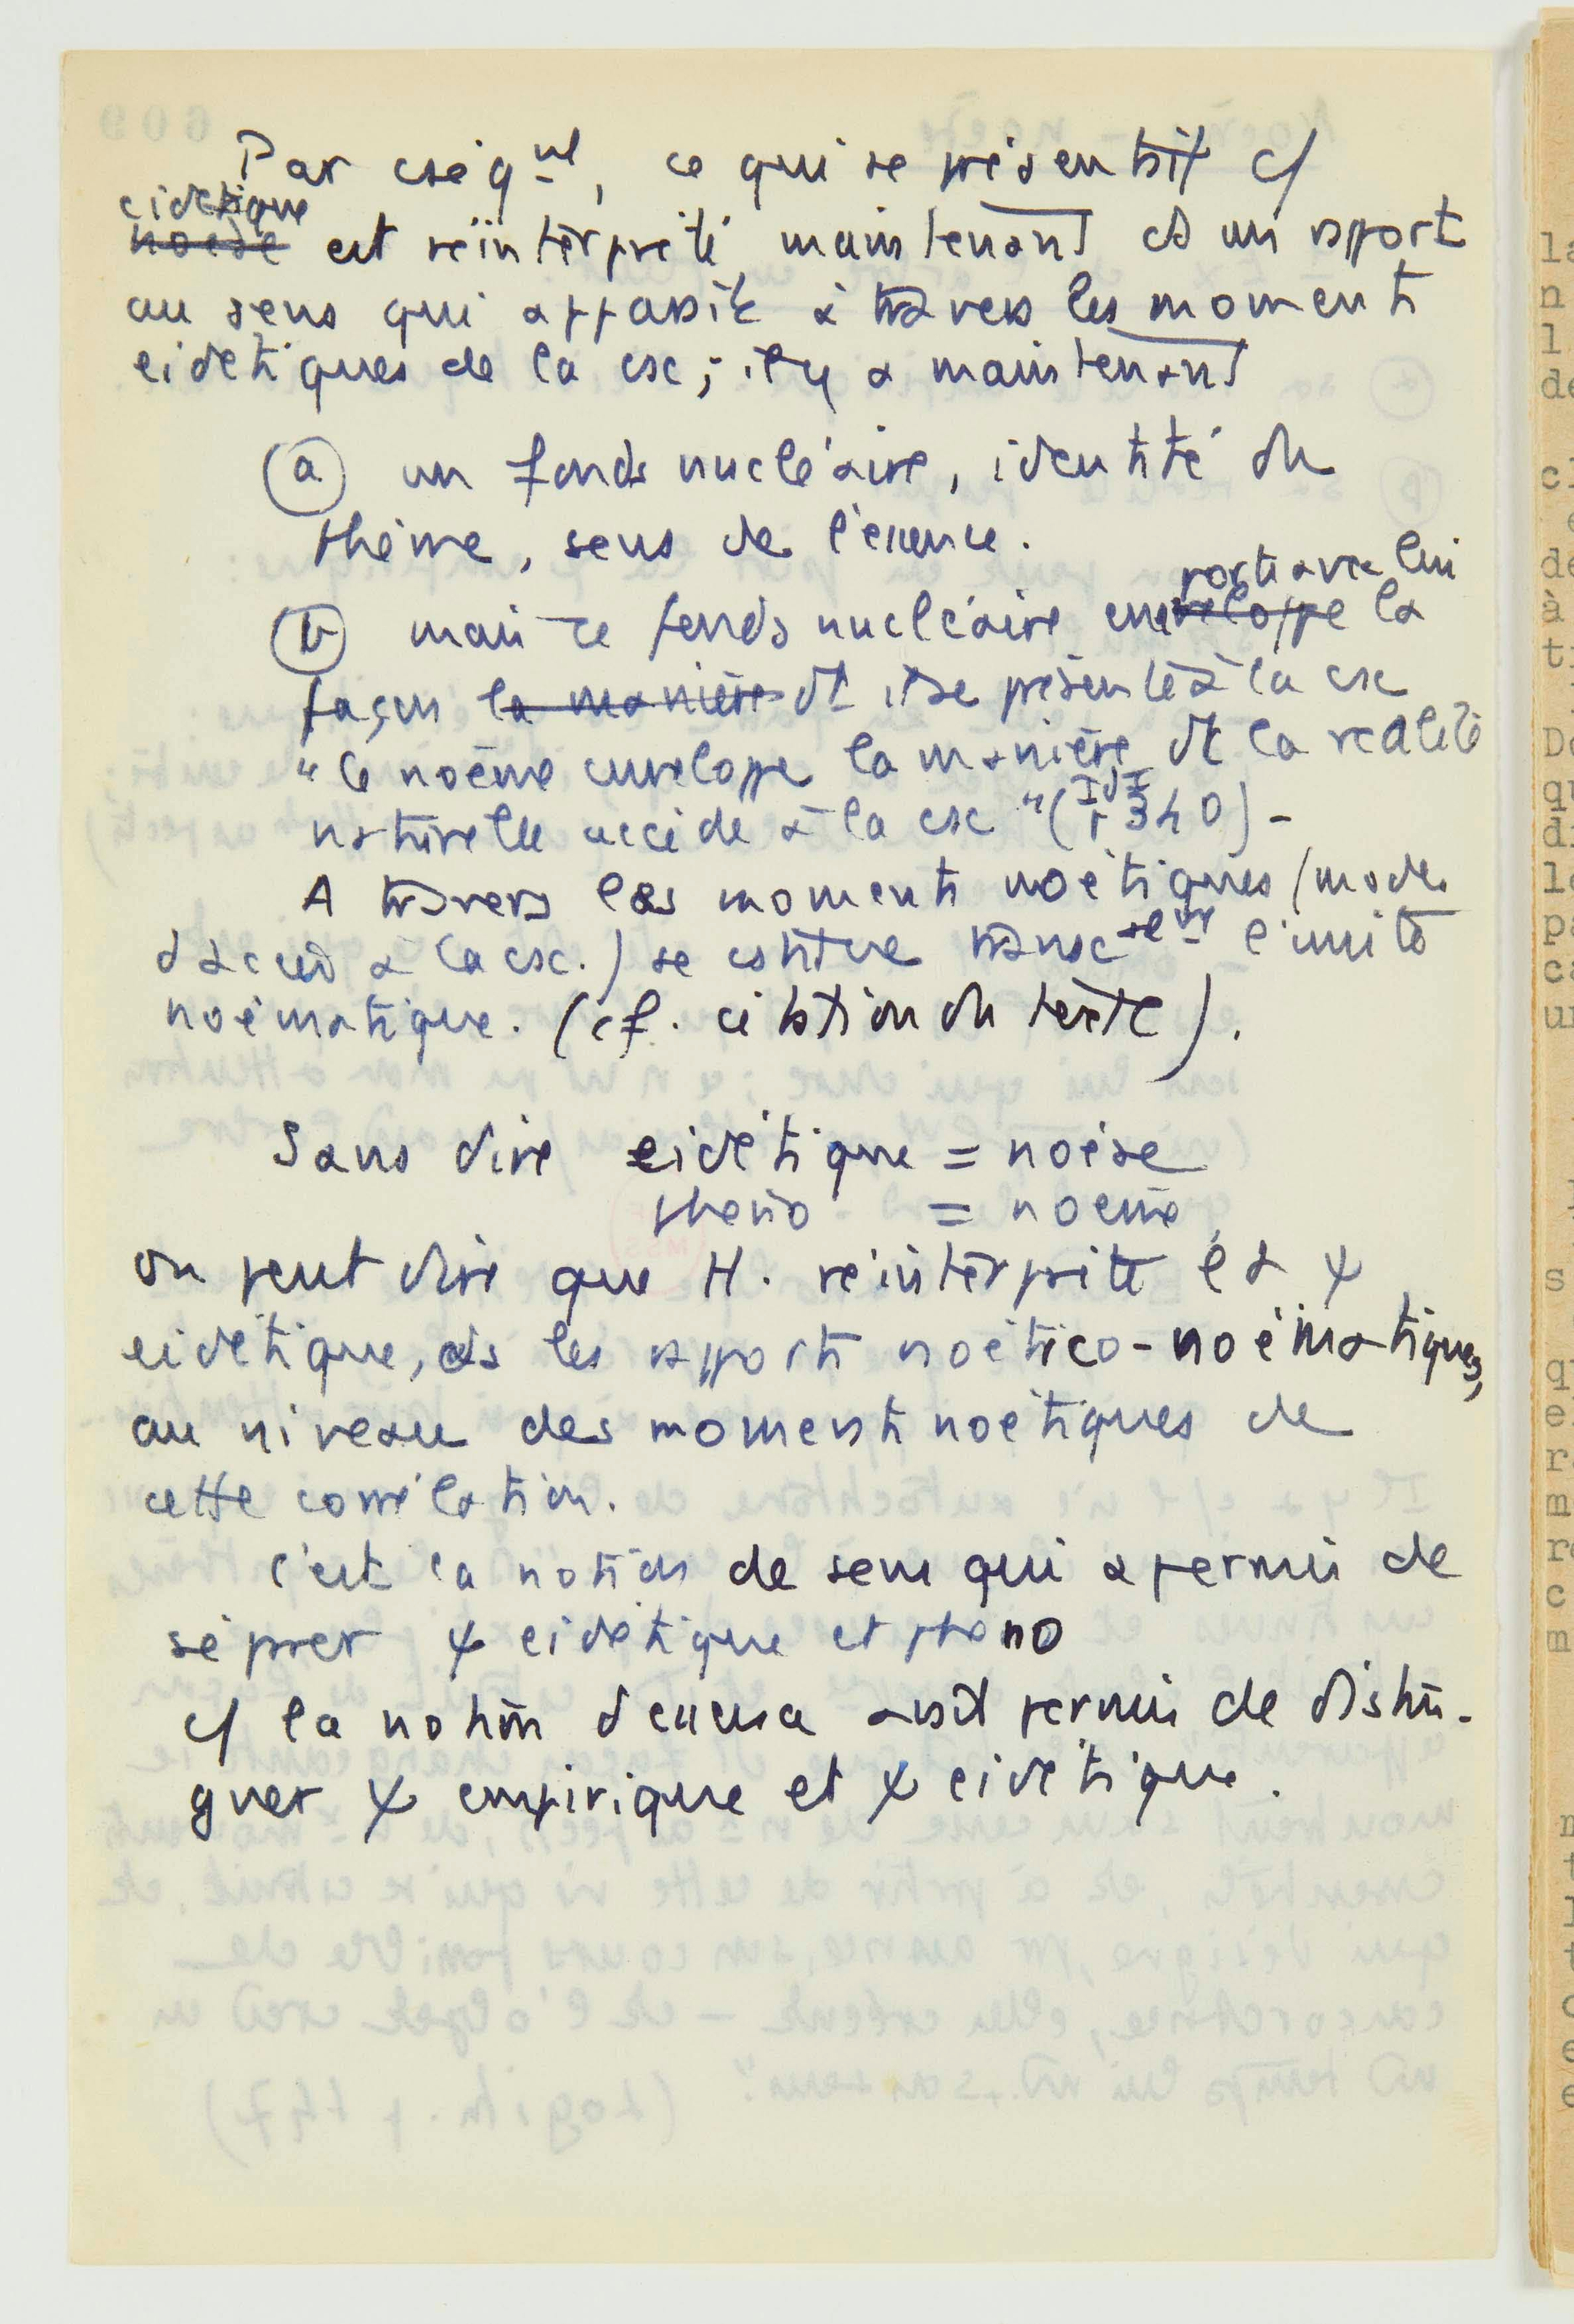 Par cséq^nt, ce qui se présentait c/
eidétique
noèse est réinterprété maintenant ds un rapport
au sens qui apparaît à travers les moments
eidétiques de la csc ; il y a maintenant
(a) un fonds nucléaire, identité du
thème, sens de l'essence.
porte avec lui
(b) mais ce fonds nucléaire enveloppe la
façon la manière dt il se présente à la csc
"le noème enveloppe la manière dt la réalité
IdI
naturelle accède à la csc" (p 340) -
A travers les moments noétiques (modes
d'accès à la csc.) se cstitue l'unité
noématique. (cf. citation du texte).
Sans dire eidétique = noèse
phéno = noème,
on peut dire que H. réinterprète la ψ
eidétique, ds les rapports noético-noématiques,
au niveau des moments noétiques de
cette corrélation.
C'est la notion de sens qui a permis de
séparer ψ eidétique et phéno
c/ la notion d'essence avait permis de distin-
guer ψ empirique et ψ eidétique.